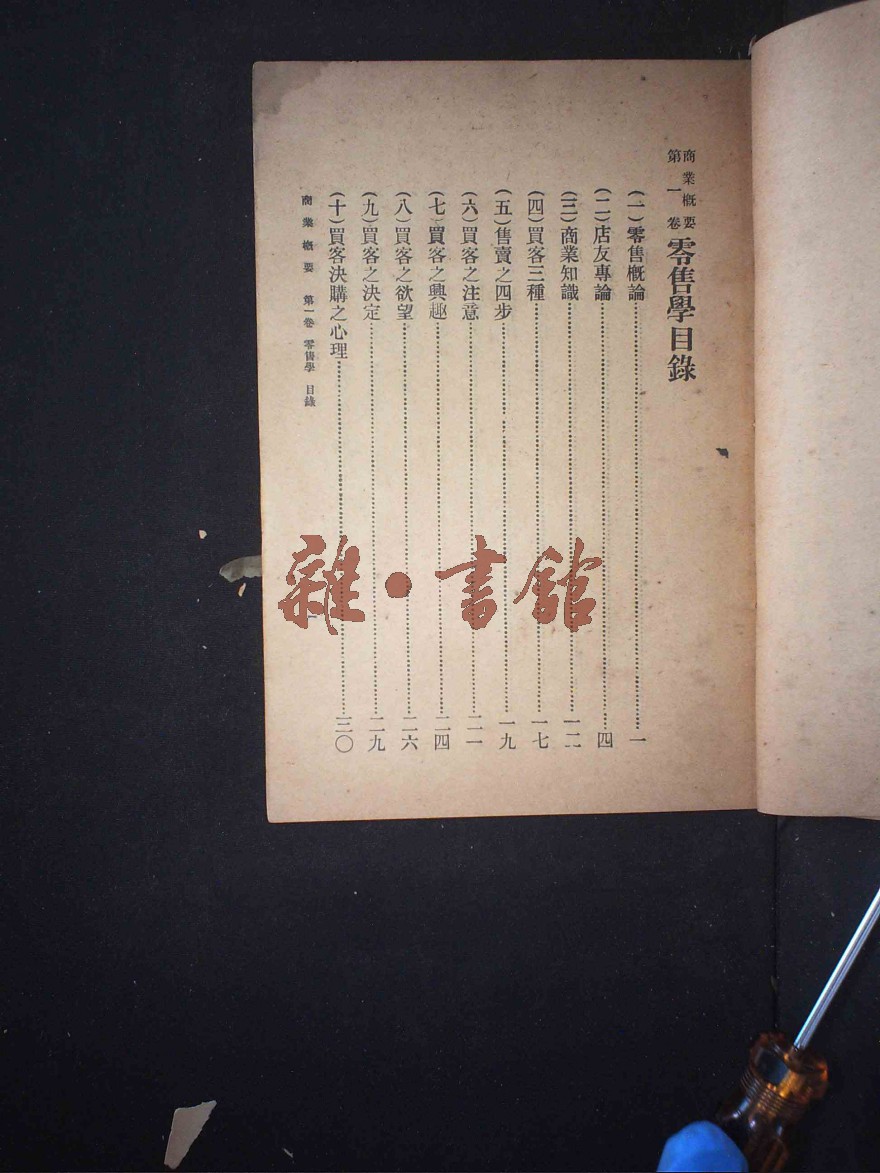 商業概要
第一卷
零售學目錄
(一)零售概論……一
(二)店友專論……四
(三)商業知識……一二
(四)買客三種……一七
(五)售賣之四步……一九
(六)買客之注意……二一
(七)買客之興趣……二四
(八)買客之欲望……二六
(九)買客之決定……二九
(十)買客決購之心理……三〇
商業概要 第一卷 零售學 目錄 一
雜·書館